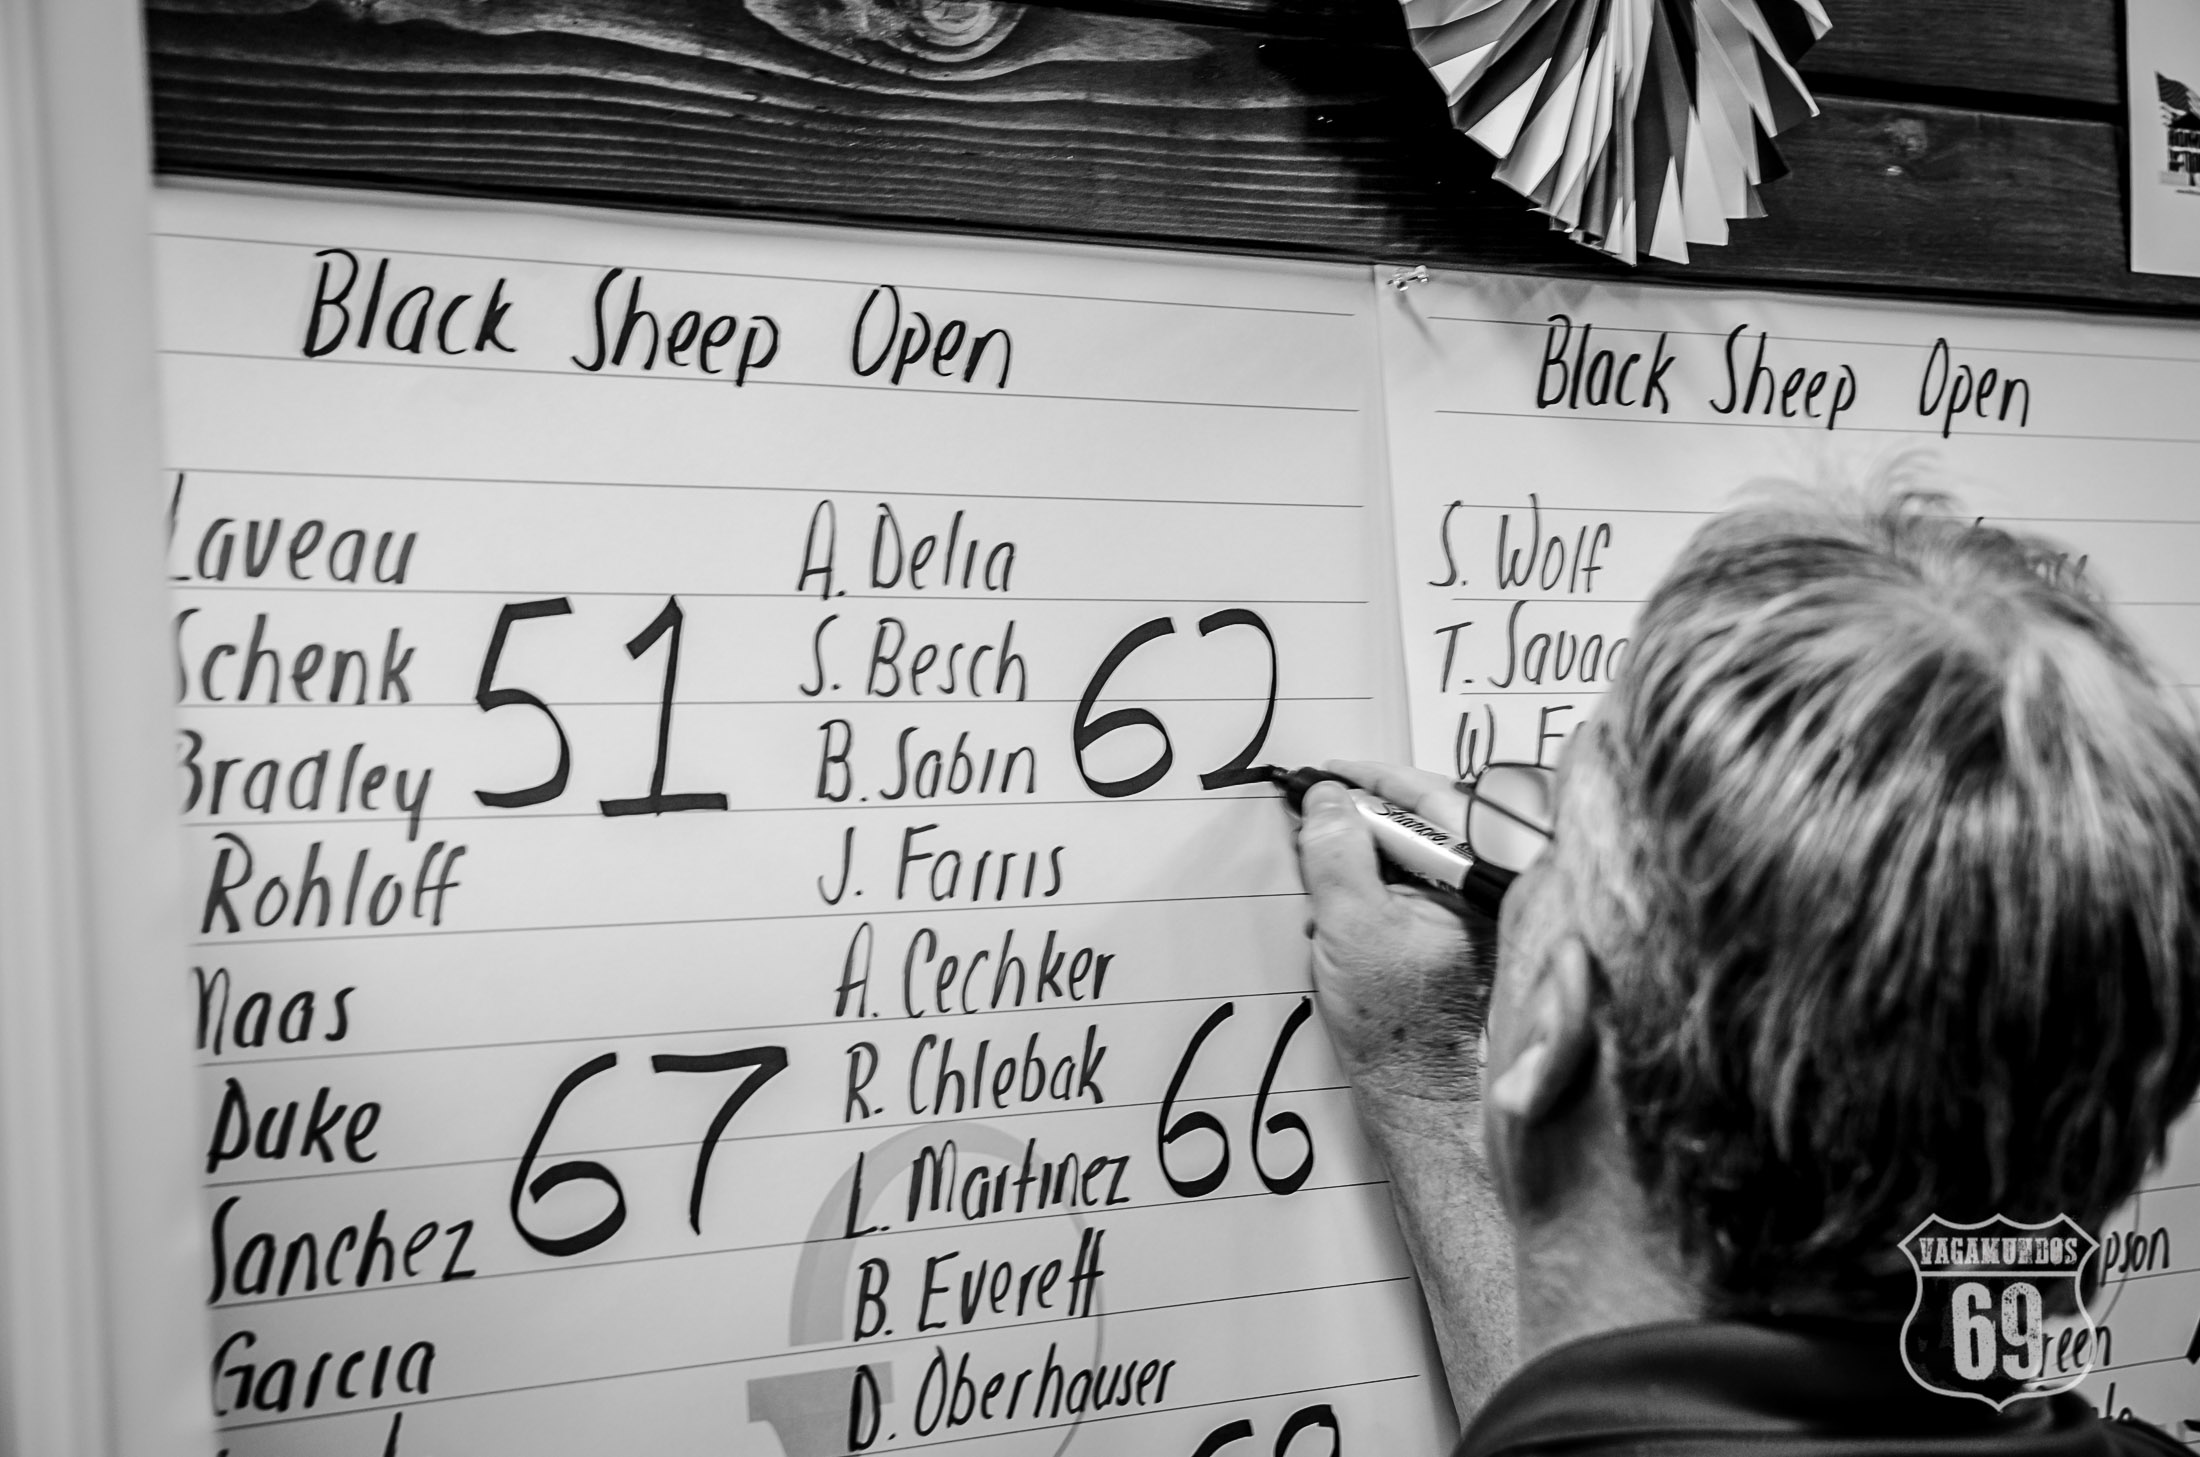 Black Sheep Open
Laveau
Schenk
51
Bradley
Rohloff
Naas
Duke
67
Sanchez
Garcia
A. Delia
S. Besch
62
B. Sabin
J. Farris
A. Cechker
R. Chlebak
66
L. Martinez
B. Everett
D. Oberhauser
Black Sheep Open
S. Wolf
T. Savag
W
Sharpie
pson
reen
VAGAMUNDOS
69